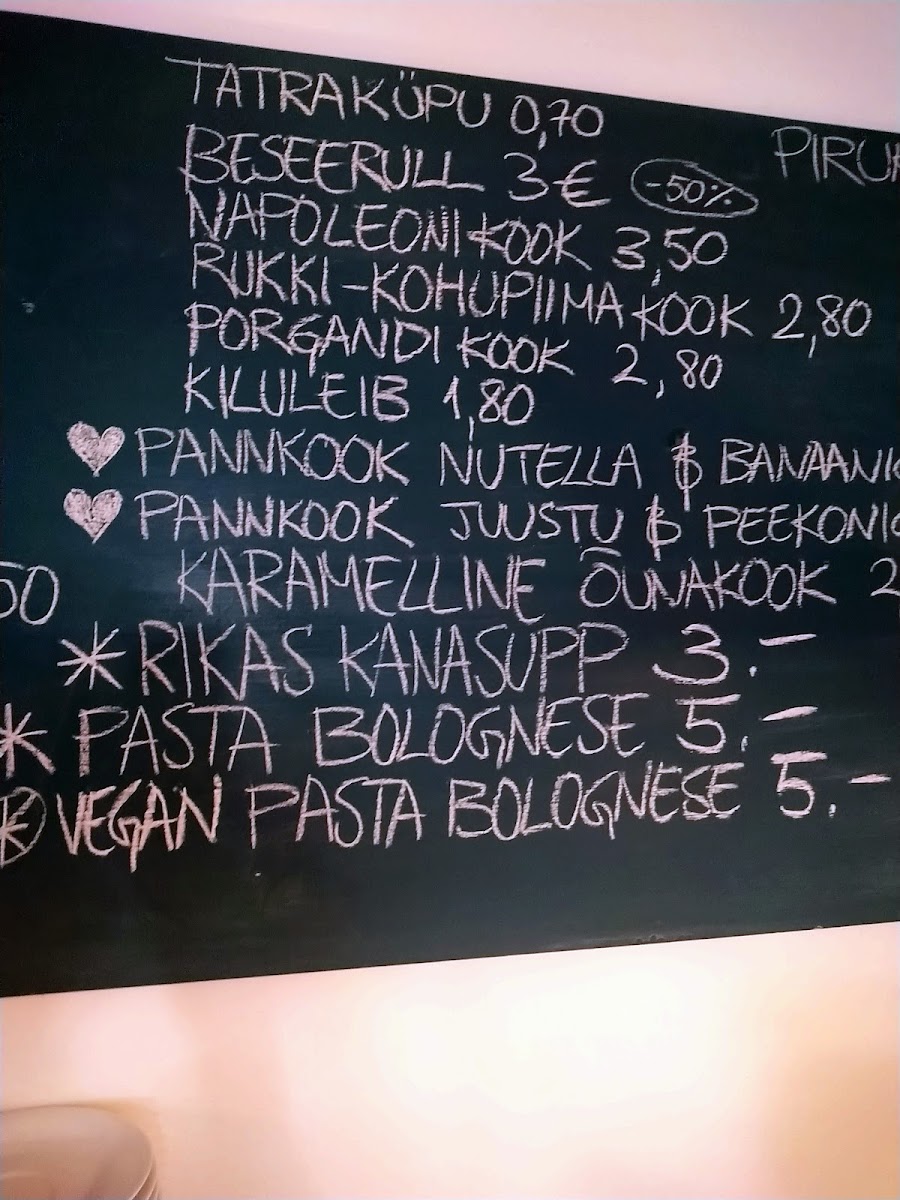 TATRAKÜPU 0,70
BESEERULL 3€ -50%
NAPOLEONI KOOK 3,50
RUKKI-KOHUPIIMA KOOK 2,80
PORGANDI KOOK 2,80
KILULEIB 1,80
PANNKOOK NUTELLA & BANAANI
PANNKOOK JUUSTU & PEEKONI
50 KARAMELLINE ÕUNAKOOK 2
* RIKAS KANASUPP 3.-
* PASTA BOLOGNESE 5.-
* VEGAN PASTA BOLOGNESE 5.-
PIRU